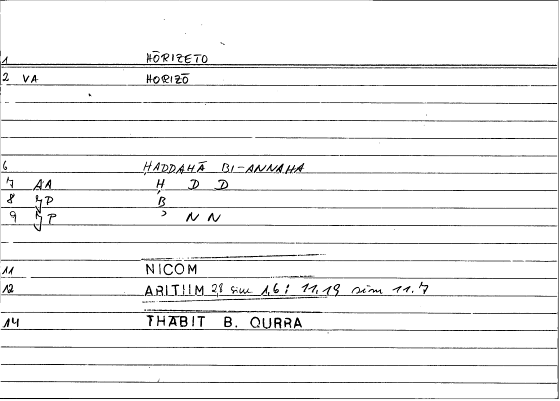 1 HŌRIZETO
2 VA HORIZŌ
6 ḤADDAHĀ BI-ANNAHA
7 AA Ḥ D D
8 JP B
9 JP ʾ N N
11 NICOM
12 ARITIIM 2,8 sim 1,6 : 11.19 sim 11.7
14 THABIT B. QURRA